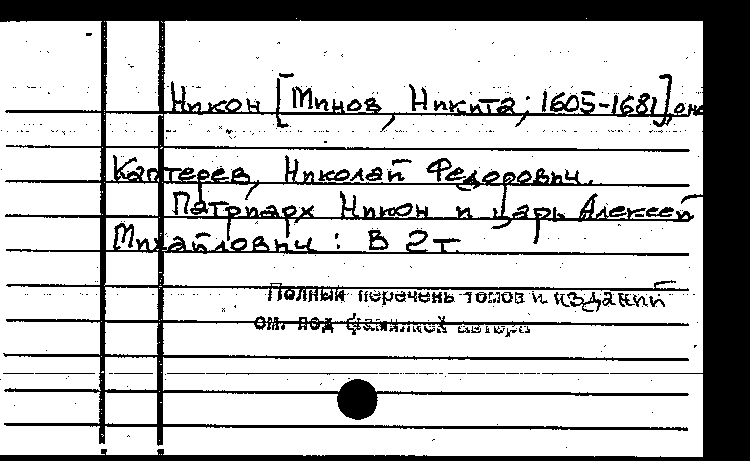 Никон [Минов, Никита; 1605-1681], о нем
Каптерев, Николай Федорович.
Патриарх Никон и царь Алексей
Михайлович: В 2 т.
Полный перечень томов и изданий
см. под фамилией автора